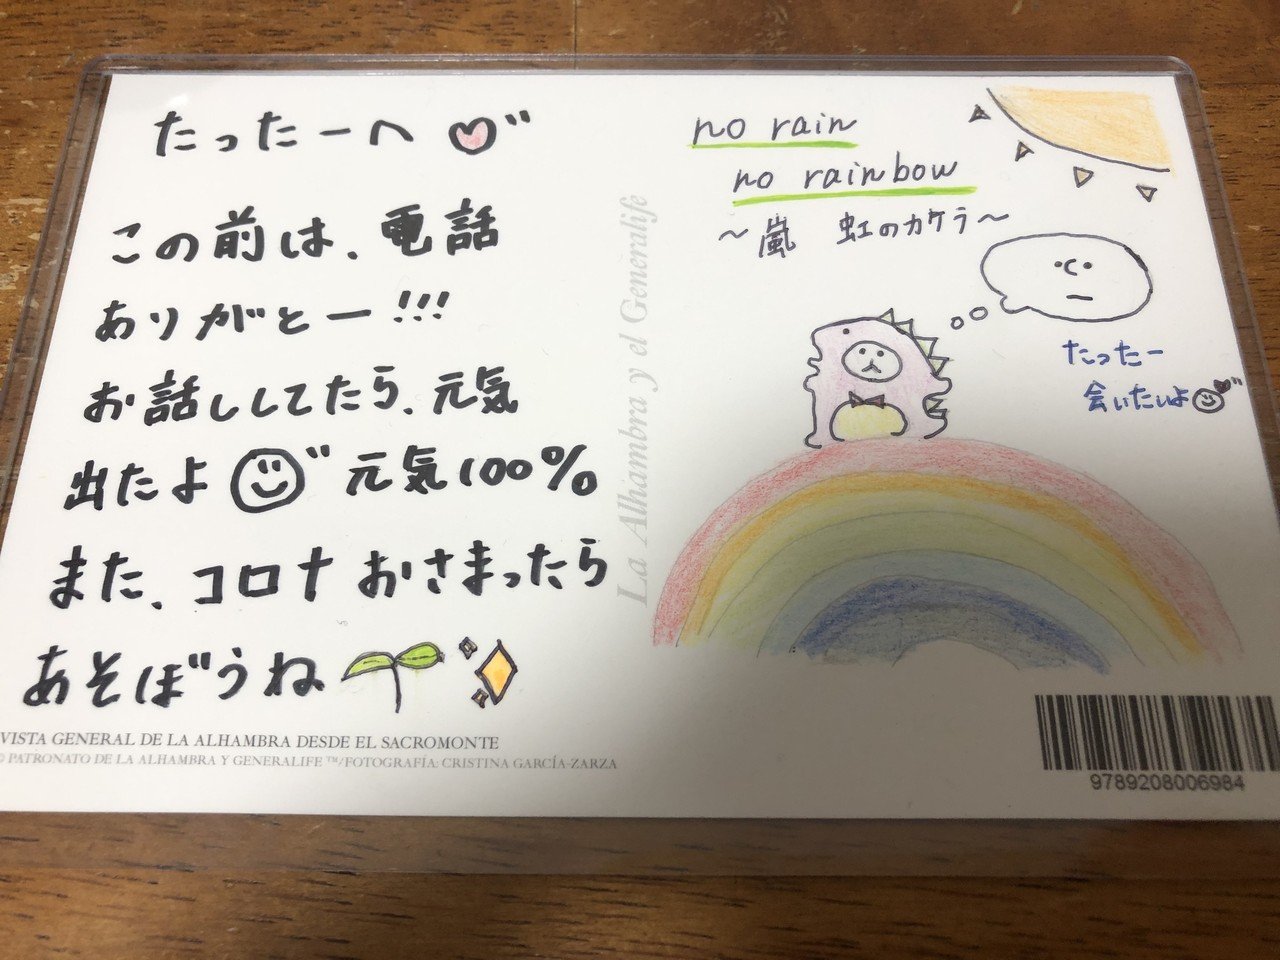 たったーへ
この前は、電話
ありがとー!!!
お話ししてたら、元気
出たよ 元気100%
また、コロナおさまったら
あそぼうね
VISTA GENERAL DE LA ALHAMBRA DESDE EL SACROMONTE
© PATRONATO DE LA ALHAMBRA Y GENERALIFE ™/FOTOGRAFÍA: CRISTINA GARCÍA-ZARZA
La Alhambra y el Generalife
no rain
no rainbow
〜嵐 虹のカケラ〜
たったー
会いたいよ
9789208006984